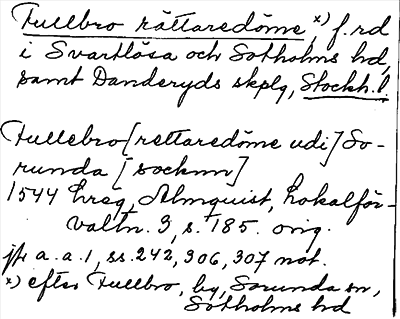 Fullbro rättaredöme, x) f.rd
i Svartlösa och Sotholms hd,
samt Danderyds skplg, Stockh. l.
Fullebro [rettaredöme udi] So-
runda [socknn]
1544 hreg, Almquist, Lokalför-
valtn. 3, s. 185. orig.
jfr a. a. 1, ss. 242, 306, 307 not.
x) efter Fullbro, by, Sorunda sn,
Sotholms hd